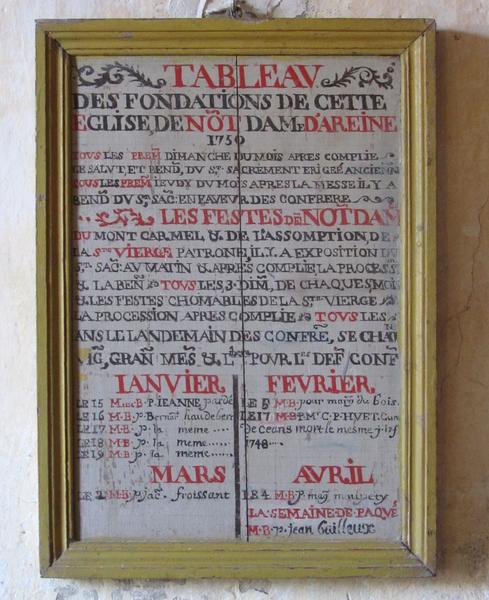 TABLEAV
DES FONDATIONS DE CETTE
EGLISE, DE NOT DAME D'AREINE
1750
TOVS LES PREM DIMANCHE DU MOIS APRES COMPLIE
LE SALVT, ET BEND, DV ST SACREMENT ERIGEE ANCIENN
TOUS LES PREM IEVDY DV MOIS APRES LA MESSE IL Y A
BEND DV ST SAC: EN FAVEUR DES CONFRERE
LES FESTES DE NOT DAM
DU MONT CARMEL & DE L'ASSOMPTION, DE
LA STE VIERGE PATRONE, IL Y A EXPOSITION DU
ST SAC: AV MATIN & APRES COMPLIE LA PROCESS
& LA BEN TOVS LES 3 DIM, DE CHAQUE MOI
& LES FESTES CHOMABLES DE LA STE VIERGE
LA PROCESSION APRES COMPLIE TOUS LES
ANS LE LANDEMAIN DES CONFRE, SE CHA
GRAN MES & POVR LES DEF CONF
IANVIER
LE 15 P. IEANNE pardé
LE 16 M·B·P. haudebert
LE 17 M·B·p. la meme
LE 18 M·B·p. la meme
LE 19 M·B·p. la meme
FEVRIER
LE 5 M·B·pour du bois
LE 17 M·B·P·Mr C·P·HVET Cur
de ceans mort le mesme j. 
1748
MARS
LE 2 M·B·p. jaq. froissant
AVRIL
LE 4 M·B·P
LA SEMAINE DE PAQVE
M·B·p. jean Guilleux